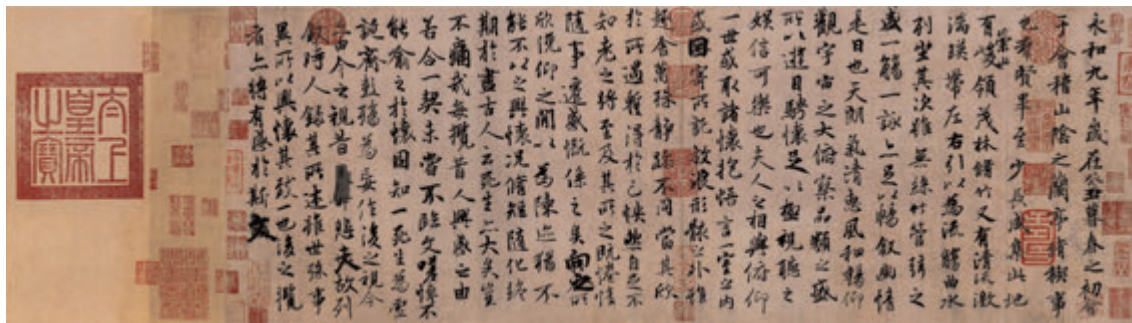 永和九年歲在癸丑暮春之初會
于會稽山陰之蘭亭脩禊事
也羣賢畢至少長咸集此地
有崇山峻領茂林脩竹又有清流激
湍暎帶左右引以為流觴曲水
列坐其次雖無絲竹管弦之
盛一觴一詠亦足以暢敘幽情
是日也天朗氣清惠風和暢仰
觀宇宙之大俯察品類之盛
所以遊目騁懷足以極視聽之
娛信可樂也夫人之相與俯仰
一世或取諸懷抱悟言一室之內
或因寄所託放浪形骸之外雖
趣舍萬殊靜躁不同當其欣
於所遇蹔得於己怏然自足不
知老之將至及其所之既惓情
隨事遷感慨係之矣向之所
欣俛仰之閒以為陳迹猶不
能不以之興懷況脩短隨化終
期於盡古人云死生亦大矣豈
不痛哉每攬昔人興感之由
若合一契未嘗不臨文嗟悼不
能喻之於懷固知一死生為虛
誕齊彭殤為妄作後之視今
亦由今之視昔悲夫故列
敘時人錄其所述雖世殊事
異所以興懷其致一也後之攬
者亦將有感於斯文
太上皇帝之寶